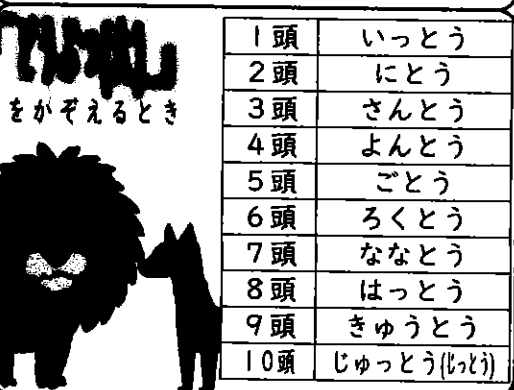 をかぞえるとき
1頭 いっとう
2頭 にとう
3頭 さんとう
4頭 よんとう
5頭 ごとう
6頭 ろくとう
7頭 ななとう
8頭 はっとう
9頭 きゅうとう
10頭 じゅっとう(じっとう)